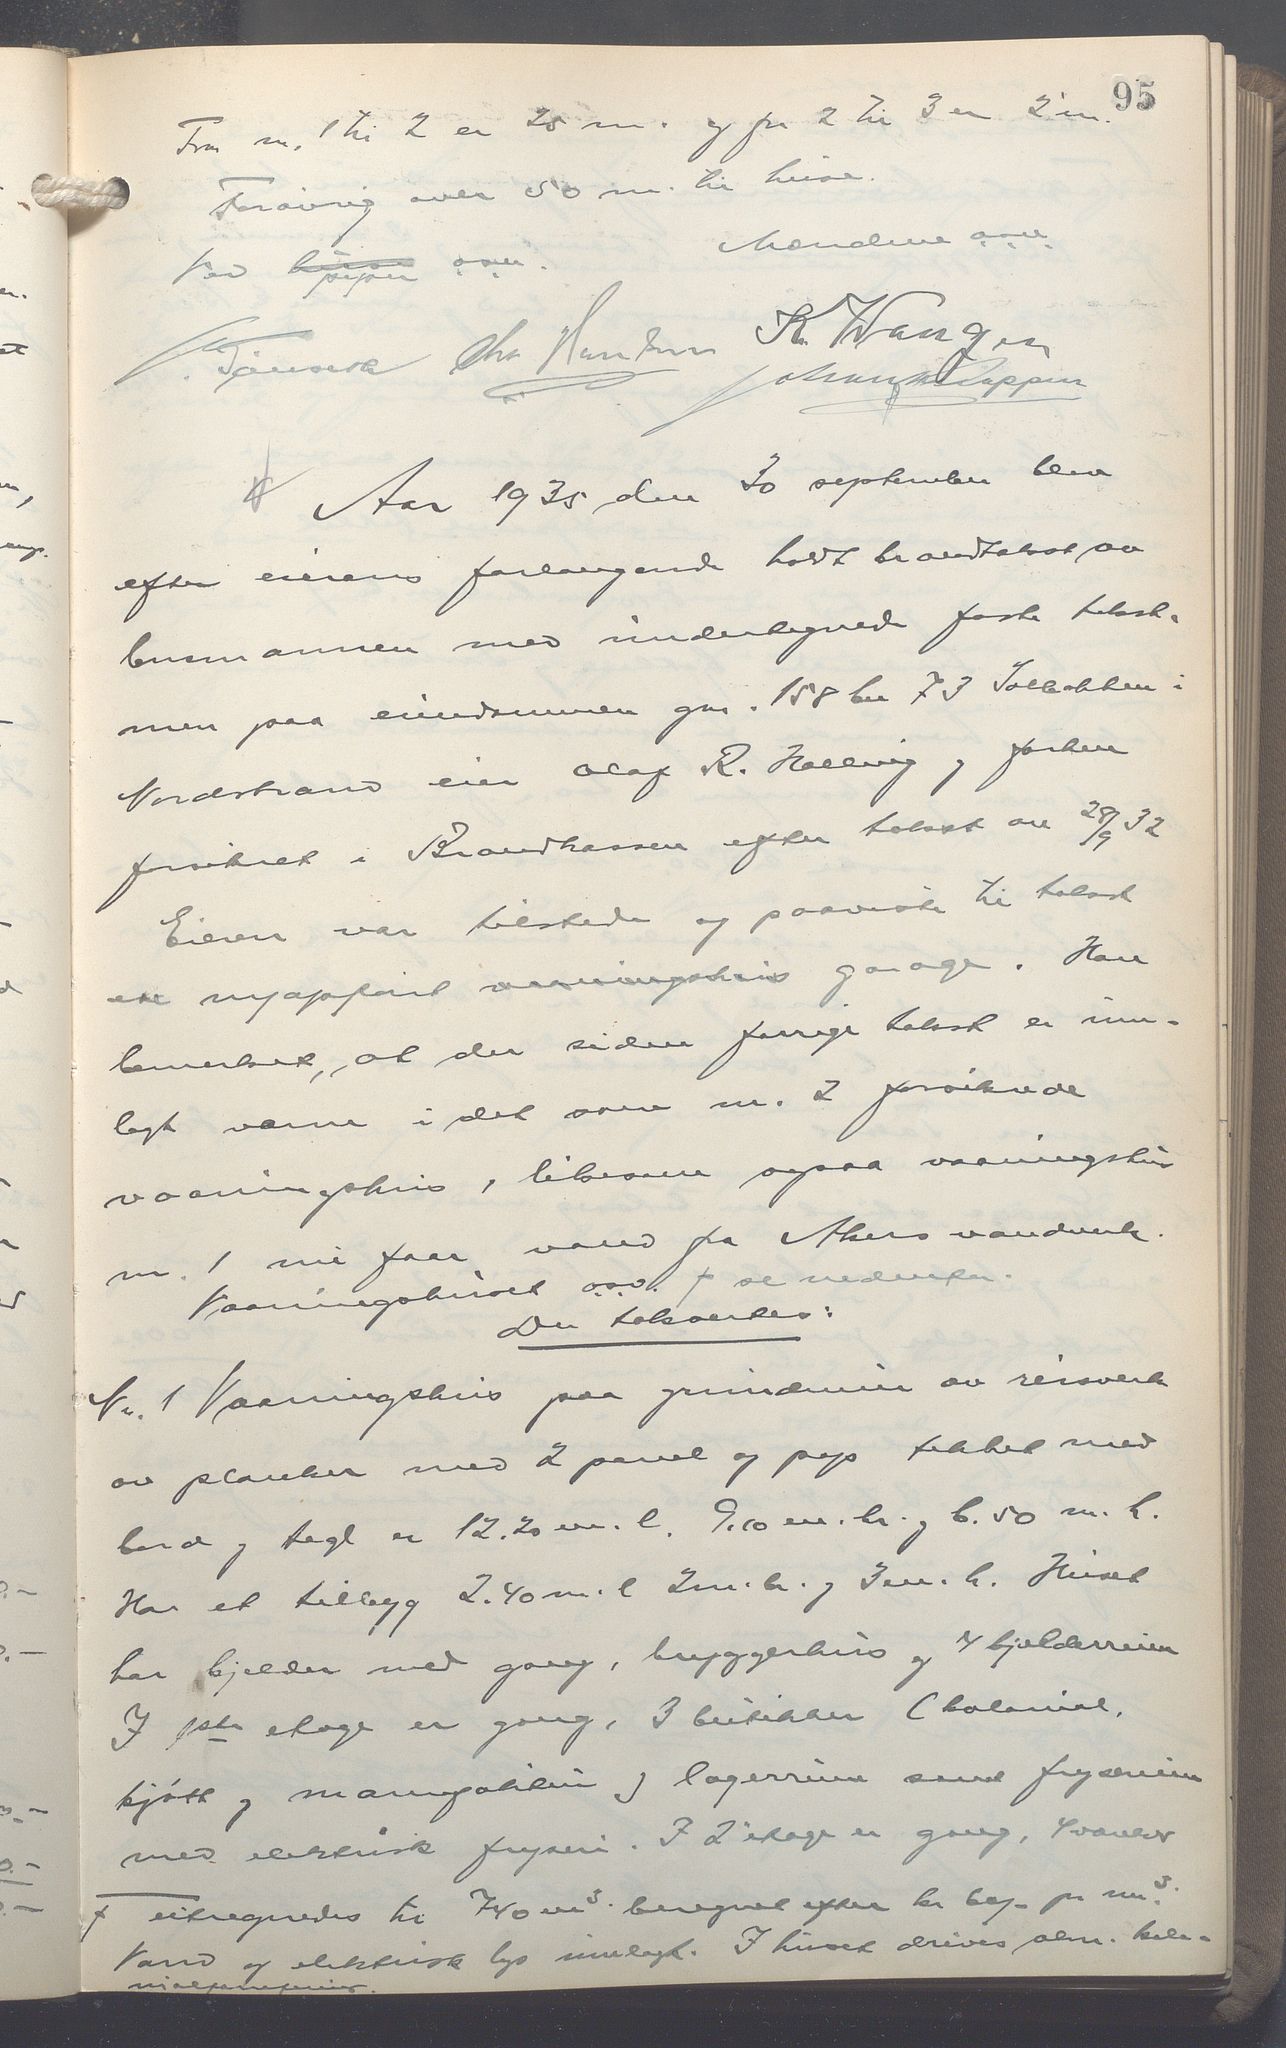 95
Fra nr. 1 til 2 er 25 m. og fra 2 til 3 er 2 m.
Forøvrig over 50 m. til huse.
Ved huse piper o.s.v. Mændene o.s.v.
Chr Hansen K. Wangen
Aar 1935 den 30 september blev
efter eierens forlangende holdt brandtakst av
lensmannen med undertegnede faste takst-
men paa eiendommen gnr. 158 bnr 73 Solbakken i
Nordstrand eier Olaf R. Hellvig og forhen
forsikret i Brandkassen efter takst av 28/9 32
Eieren var tilstede og paaviste til takst
en nyopført vaaningshus garage. Han
bemerket, at der siden forrige takst er inn-
lagt varme i det som nr. 2 forsikrede
vaaningshus, likesom ogsaa vaaningshus
nr. 1 nu faar vand fra Akers vandverk.
Vaaningshuset o.s.v. + se nedenfor.
Der takseredes:
Nr. 1 Vaaningshus paa grundmur av reisverk
av planker med 2 panel og pap tekket med
bord og tegl er 12.20 m. l. 9.10 m. br. og 6.50 m. h.
Har et tilbygg 2.40 m. l 2 m. br. og 3 m. h. Huset
har kjelder med gang, bryggerhus og 4 kjelderrum
I 1ste etage er gang, 3 butikker (kolonial,
kjøtt og manufaktur og lagerrum samt fryserum
med elektrisk fryseri. I 2 etage er gang, 4 værelser
+ utregnedes til 740 m3. beregnet efter kr pr m3.
Vand og elektrisk lys innlagt. I huset drives alm. kolo-
nialforretning.